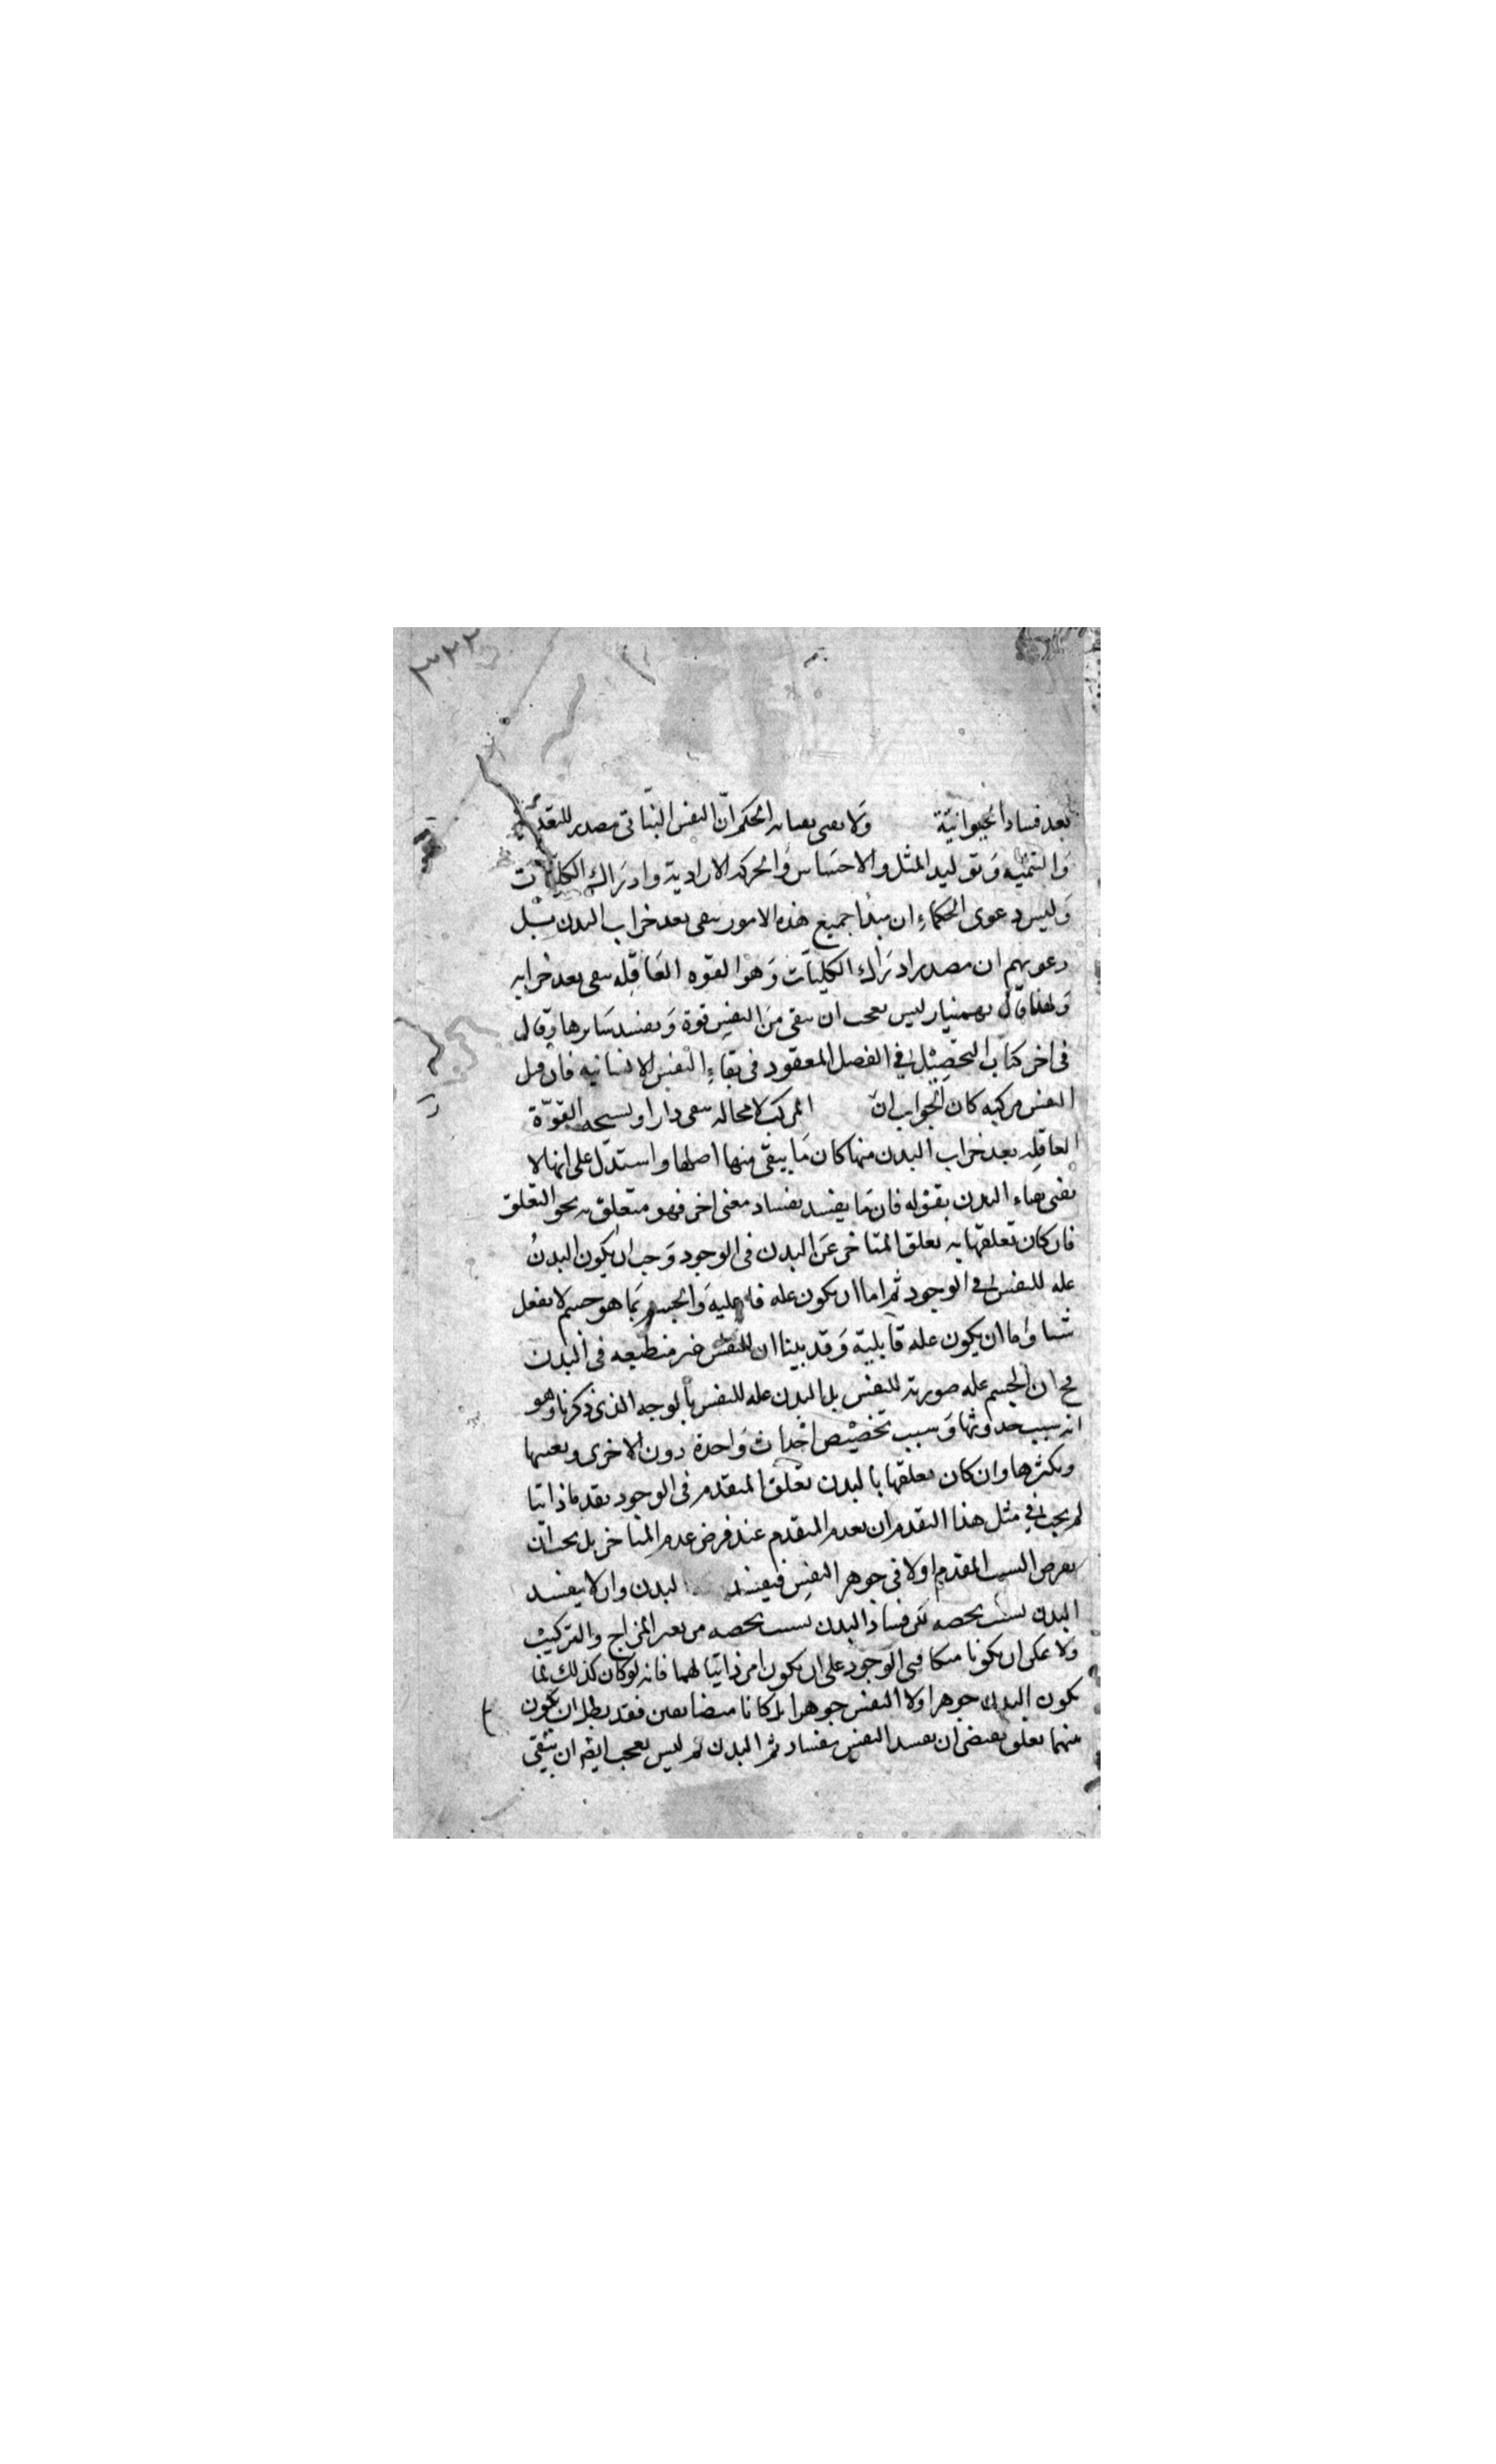 ٣٢٢
بعد فساد الحيوانية ولا يصى الحكم ان النفس النباتى مصدر للتغذى
والتنميه وتوليد المثل والاحساس والحركه الارادية وادراك الكليات
وليس دعوى الحكماء ان مبدأ جميع هذه الامور يبقى بعد خراب البدن بل
دعويهم ان مصدر ادراك الكليات وهو القوه العاقله يبقى بعد خرابه
ولهذا قال بهمنيار ليس بعجب ان يبقى من النفس قوة ويفسد سايرها وقال
فى اخر كتاب التحصيل فى الفصل المعقود فى بقاء النفس الانسانيه فان قيل
النفس مركبه كان الجواب ان المركب لا محاله يبقى القوة
العاقله بعد خراب البدن منها كان ما يبقى منها اصلها واستدل على انها لا
يفنى بفناء البدن بقوله فان ما يفسد بفساد معنى اخر فهو متعلق به نحو التعلق
فان كان تعلقها به تعلق المتاخر عن البدن فى الوجود وجب ان يكون البدن
عله للنفس فى الوجود ثم اما ان يكون عله فاعليه والجسم بما هو جسم لا يفعل
شيا واما ان يكون عله قابلية وقد بينا ان النفس غير منطبعه فى البدن
ومح ان الجسم عله صورية للنفس بل البدن عله للنفس بالوجه الذى ذكرنا وهو
انه سبب حدوثها وسبب تخصيص احداث واحدة دون الاخرى وتعينها
وتكثرها وان كان تعلقها بالبدن تعلق المتقدم فى الوجود تقدما ذاتيا
لم يجب فى مثل هذا التقدم ان يعدم المتقدم عند فرض عدم المتاخر بل يجب ان
يعرض السبب المقدم اولا فى جوهر النفس فيفسد البدن وان لا يفسد
البدن بسبب يخصه لكن فساد البدن بسبب يخصه من تغير المزاج والتركيب
ولا يمكن ان يكونا متكافيى الوجود على ان يكون امر ذاتيا لهما فانه لو كان كذلك لما
يكون البدن جوهرا ولا النفس جوهرا بل كانا متضايفين فقد بطل ان يكون
بينهما تعلق يقتضى ان يفسد النفس بفساد البدن ثم ليس بعجب ايضا ان يبقى